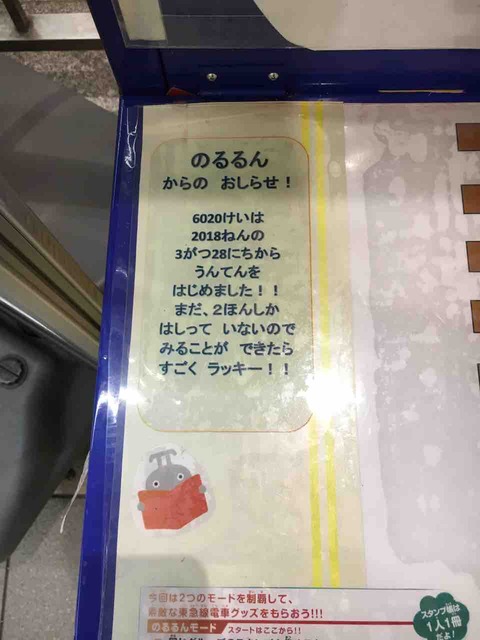 のるるん
からの おしらせ！
6020けいは
2018ねんの
3がつ28にちから
うんてんを
はじめました！！
まだ、2ほんしか
はしって いないので
みることが できたら
すごく ラッキー！！
今回は2つのモードを制覇して、
素敵な東急線電車グッズをもらおう!!!
のるるんモード スタートはここから!!
スタンプ帳は
1人1冊
だよ!